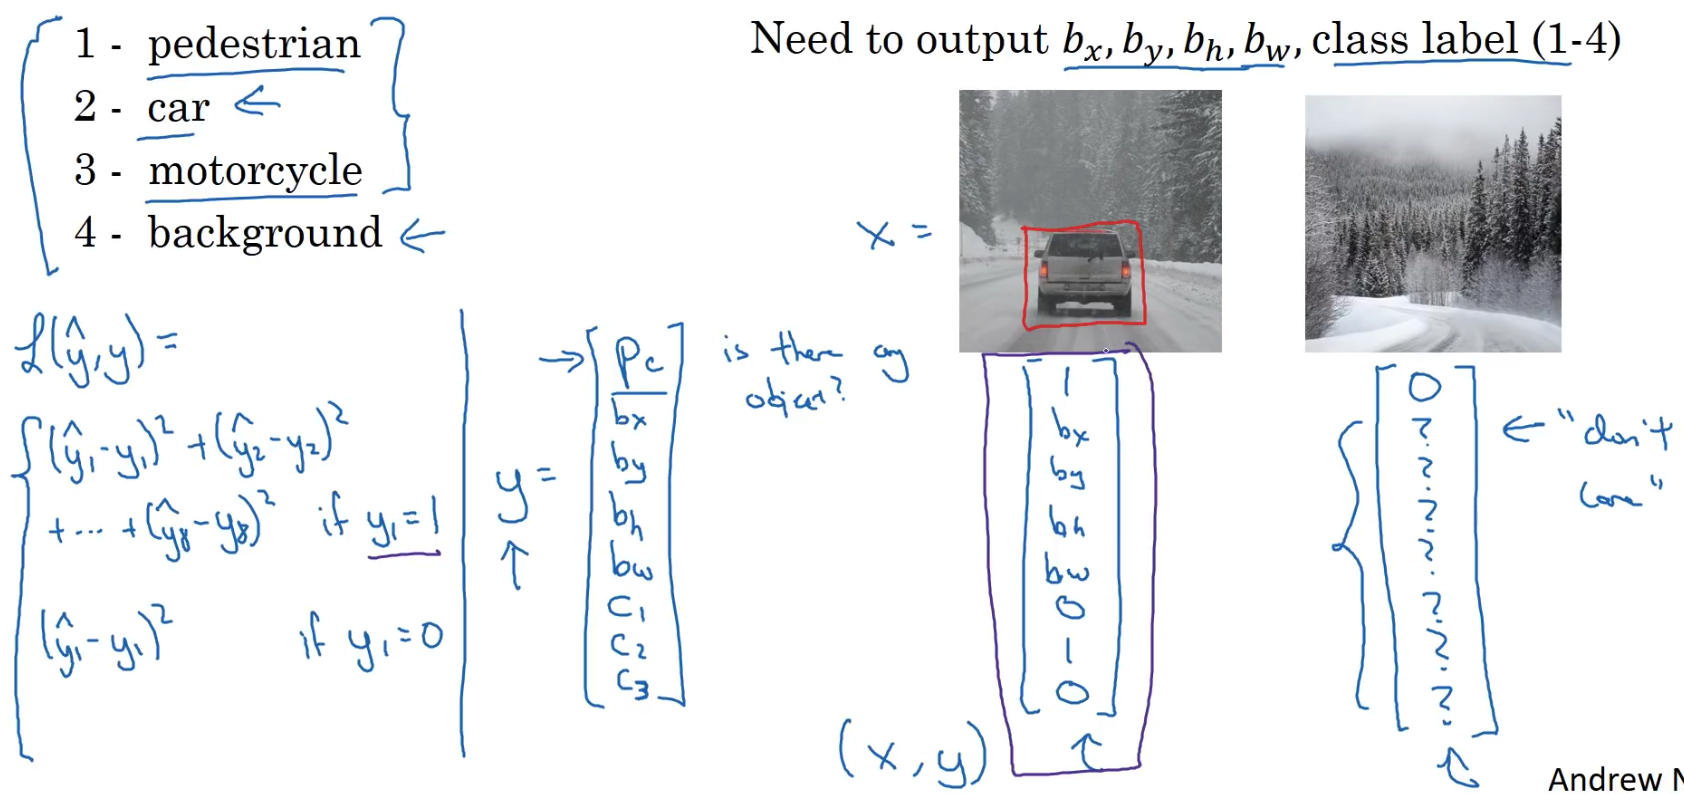 1 - pedestrian
2 - car ←
3 - motorcycle
4 - background ←
Need to output bₓ, b_y, b_h, b_w, class label (1-4)
x =
ℒ(ŷ, y) =
(ŷ₁ - y₁)² + (ŷ₂ - y₂)²
+ ... + (ŷ₈ - y₈)² if y₁ = 1
(ŷ₁ - y₁)² if y₁ = 0
y =
→ Pc
bx
by
bh
bw
C₁
C₂
C₃
is there any
object?
1
bx
by
bh
bw
0
1
0
(x, y)
0
?
?
?
?
?
?
?
← "don't
care"
Andrew N